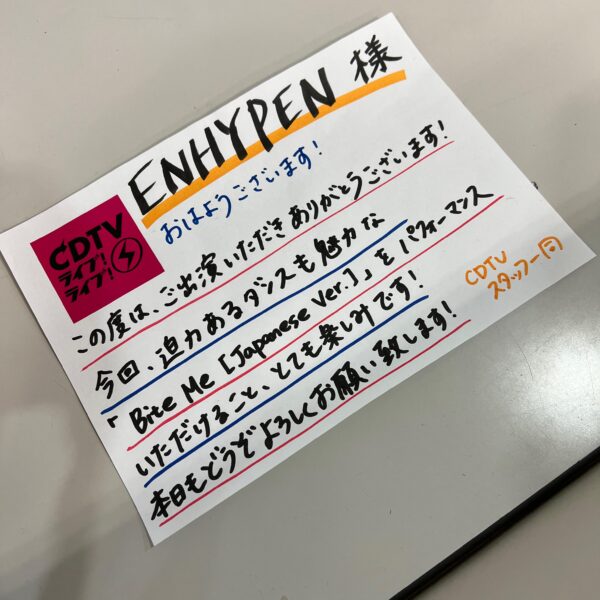 ENHYPEN 様
おはようございます!
CDTV
ライブ!
ライブ!
この度は、ご出演いただきありがとうございます!
今回、迫力あるダンスも魅力な
「Bite Me [Japanese Ver.]」をパフォーマンス
いただけること、とても楽しみです!
本日もどうぞよろしくお願い致します!
CDTV
スタッフ一同